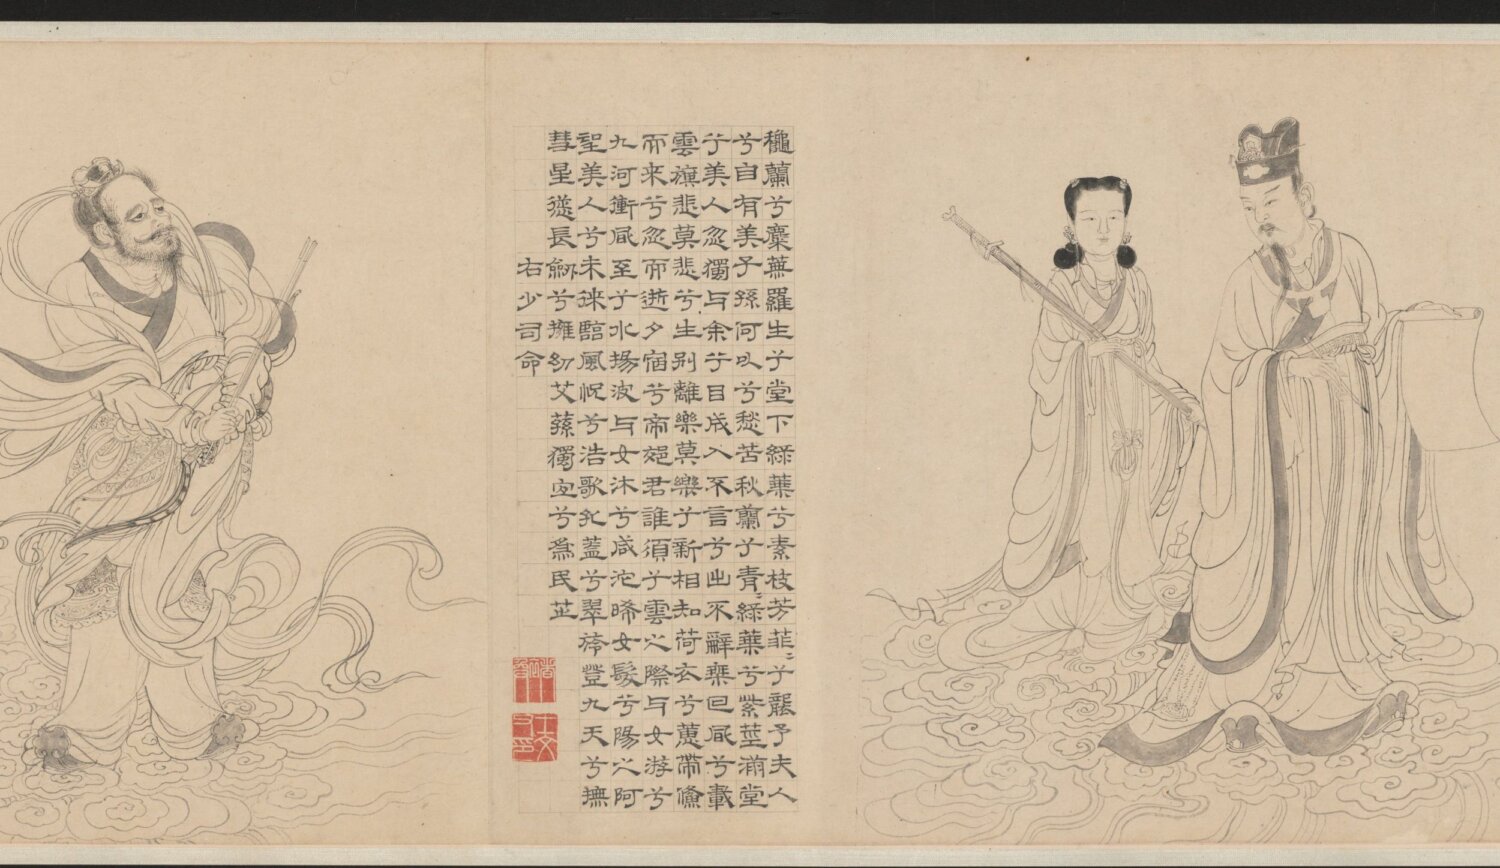 龝蘭兮麋蕪羅生兮堂下綠葉兮素枝芳菲〻兮襲予夫人
兮自有美子孫何以兮愁苦秋蘭兮青〻綠葉兮紫莖滿堂
兮美人忽獨与余兮目成入不言兮出不辭椉回風兮載
雲旗悲莫悲兮生別離樂莫樂兮新相知荷衣兮蕙帶儵
而來兮忽而逝夕宿兮帝郊君誰須兮雲之際与女游兮
九河衝風至兮水揚波与女沐兮咸池晞女髮兮陽之阿
望美人兮未徠臨風怳兮浩歌孔蓋兮翠旍登九天兮撫
彗星慫長劍兮擁幼艾蓀獨宜兮為民正
右少司命